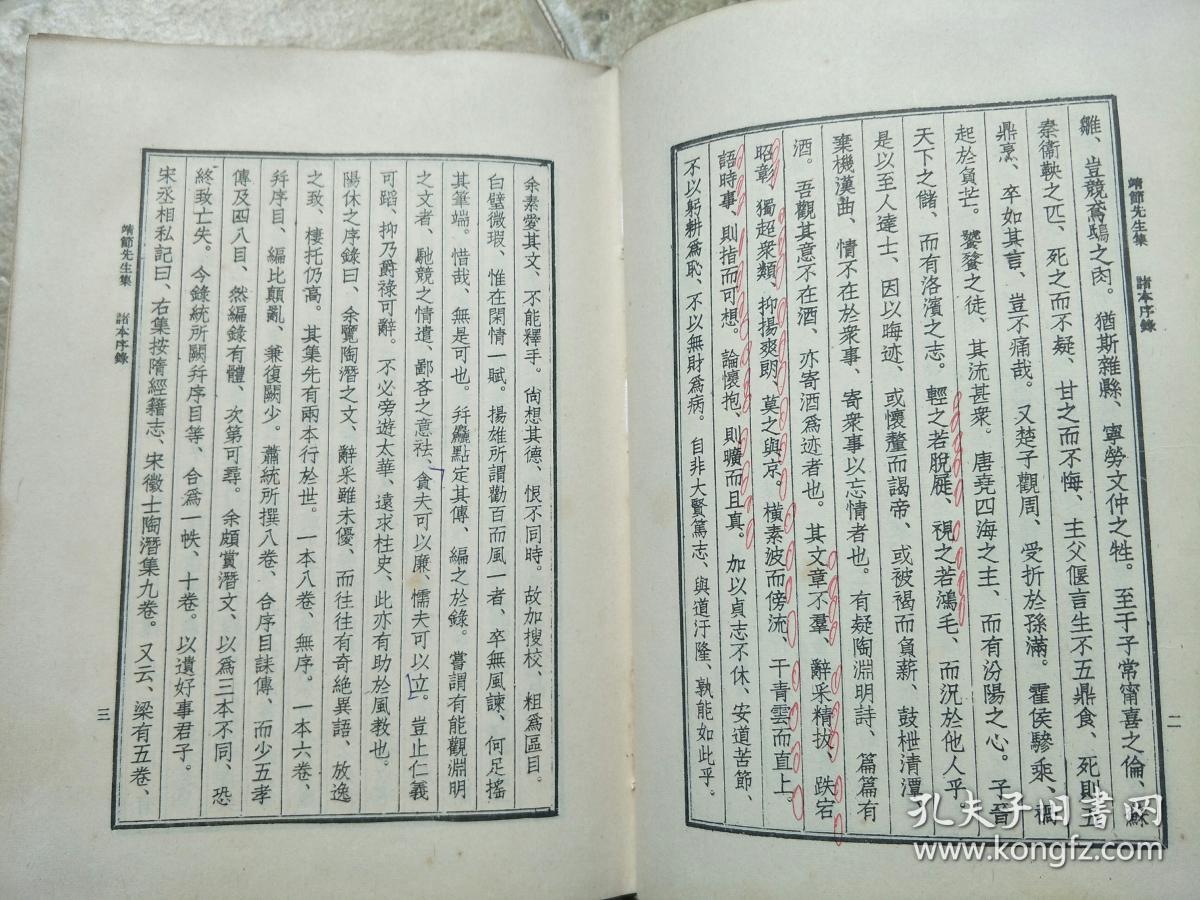 靖節先生集　諸本序錄
二
雛、豈競鳶鴟之肉。猶斯雜縣、寧勞文仲之牲。至于子常甯喜之倫、蘇
秦衞鞅之匹、死之而不疑、甘之而不悔、主父偃言生不五鼎食、死則五
鼎烹、卒如其言、豈不痛哉。又楚子觀周、受折於孫滿。霍侯驂乘、禍
起於負芒。饕餮之徒、其流甚衆。唐堯四海之主、而有汾陽之心。子晉
天下之儲、而有洛濱之志。輕之若脫屣、視之若鴻毛、而況於他人乎。
是以至人達士、因以晦迹、或懷釐而謁帝、或被褐而負薪、鼓枻清潭
棄機漢曲、情不在於衆事、寄衆事以忘情者也。有疑陶淵明詩、篇篇有
酒。吾觀其意不在酒、亦寄酒爲迹者也。其文章不羣、辭采精拔、跌宕
昭彰、獨超衆類、抑揚爽朗、莫之與京。橫素波而傍流、干青雲而直上。
語時事、則指而可想。論懷抱、則曠而且真。加以貞志不休、安道苦節、
不以躬耕爲恥、不以無財爲病。自非大賢篤志、與道汙隆、孰能如此乎。
余素愛其文、不能釋手。尙想其德、恨不同時。故加搜校、粗爲區目。
白璧微瑕、惟在閑情一賦。揚雄所謂勸百而風一者、卒無風諫、何足搖
其筆端。惜哉、無是可也。幷麤點定其傳、編之於錄。嘗謂有能觀淵明
之文者、馳競之情遣、鄙吝之意祛、貪夫可以廉、懦夫可以立。豈止仁義
可蹈、抑乃爵祿可辭。不必旁遊太華、遠求柱史、此亦有助於風教也。
陽休之序錄曰、余覽陶潛之文、辭采雖未優、而往往有奇絶異語、放逸
之致、棲托仍高。其集先有兩本行於世。一本八卷、無序。一本六卷、
幷序目、編比顛亂、兼復闕少。蕭統所撰八卷、合序目誄傳、而少五孝
傳及四八目、然編錄有體、次第可尋。余頗賞潛文、以爲三本不同、恐
終致亡失。今錄統所闕幷序目等、合爲一帙、十卷。以遺好事君子。
宋丞相私記曰、右集按隋經籍志、宋徵士陶潛集九卷。又云、梁有五卷、
靖節先生集　諸本序錄
三
孔夫子旧書网
www.kongfz.com